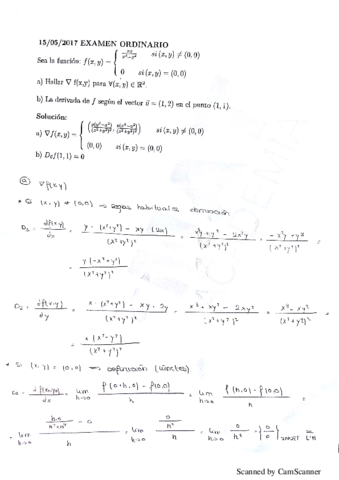 15/05/2017 EXAMEN ORDINARIO
Sea la función: f(x,y) = { xy/(x²+y²) si (x,y) ≠ (0,0)
0 si (x,y) = (0,0)
a) Hallar ∇ f(x,y) para ∀(x,y) ∈ ℝ².
b) La derivada de f según el vector ū = (1,2) en el punto (1,1).
Solución:
a) ∇f(x,y) = { (y(y²−x²)/(x²+y²)², x(x²−y²)/(x²+y²)²) si (x,y) ≠ (0,0)
(0,0) si (x,y) = (0,0)
b) Dūf(1,1) = 0
a) ∇f(x,y)
• Si (x,y) ≠ (0,0) → Reglas habituales derivación
= df(x,y)/dx = y·(x²+y²) − xy·(2x)/(x²+y²)² = x²y + y³ − 2x²y/(x²+y²)² = −x²y + y³/(x²+y²)²
= y(−x²+y²)/(x²+y²)²
= df(x,y)/dy = x·(x²+y²) − xy·2y/(x²+y²)² = x³ + xy² − 2xy²/(x²+y²)² = x³ − xy²/(x²+y²)²
= x(x²−y²)/(x²+y²)²
• Si (x,y) = (0,0) → definición (límites)
df(x,y)/dx = lim h→0 f(0+h,0) − f(0,0)/h = lim h→0 f(h,0) − f(0,0)/h
= lim h→0 h·0/h²+0² − 0/h = lim h→0 0/h²/h = lim h→0 0/h³ = {0/0} = L'H
Scanned by CamScanner